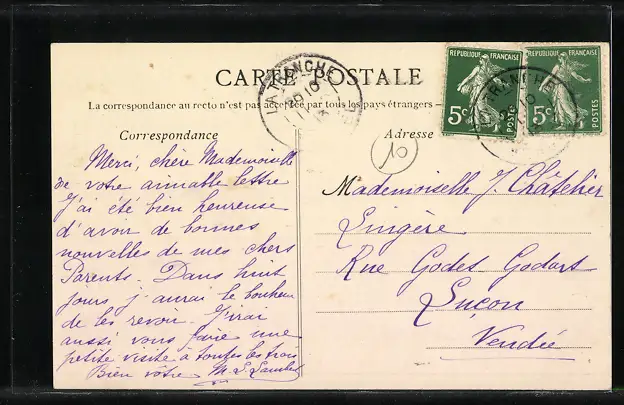 CARTE POSTALE
La correspondance au recto n'est pas acceptée par tous les pays étrangers
Correspondance
Adresse
REPUBLIQUE FRANÇAISE
5c
POSTES
REPUBLIQUE FRANÇAISE
5c
POSTES
LA TRANCHE
LA TRANCHE
10
Merci, chère Mademoiselle
de votre aimable lettre
J'ai été bien heureuse
d'avoir de bonnes
nouvelles de mes chers
Parents. Dans huit
jours j'aurai le bonheur
de les revoir. J'irai
aussi vous faire une
petite visite à toutes les trois
Bien vôtre M. L.
Mademoiselle J. Châtelier
Lingère
Rue Godet Godart
Luçon
Vendée